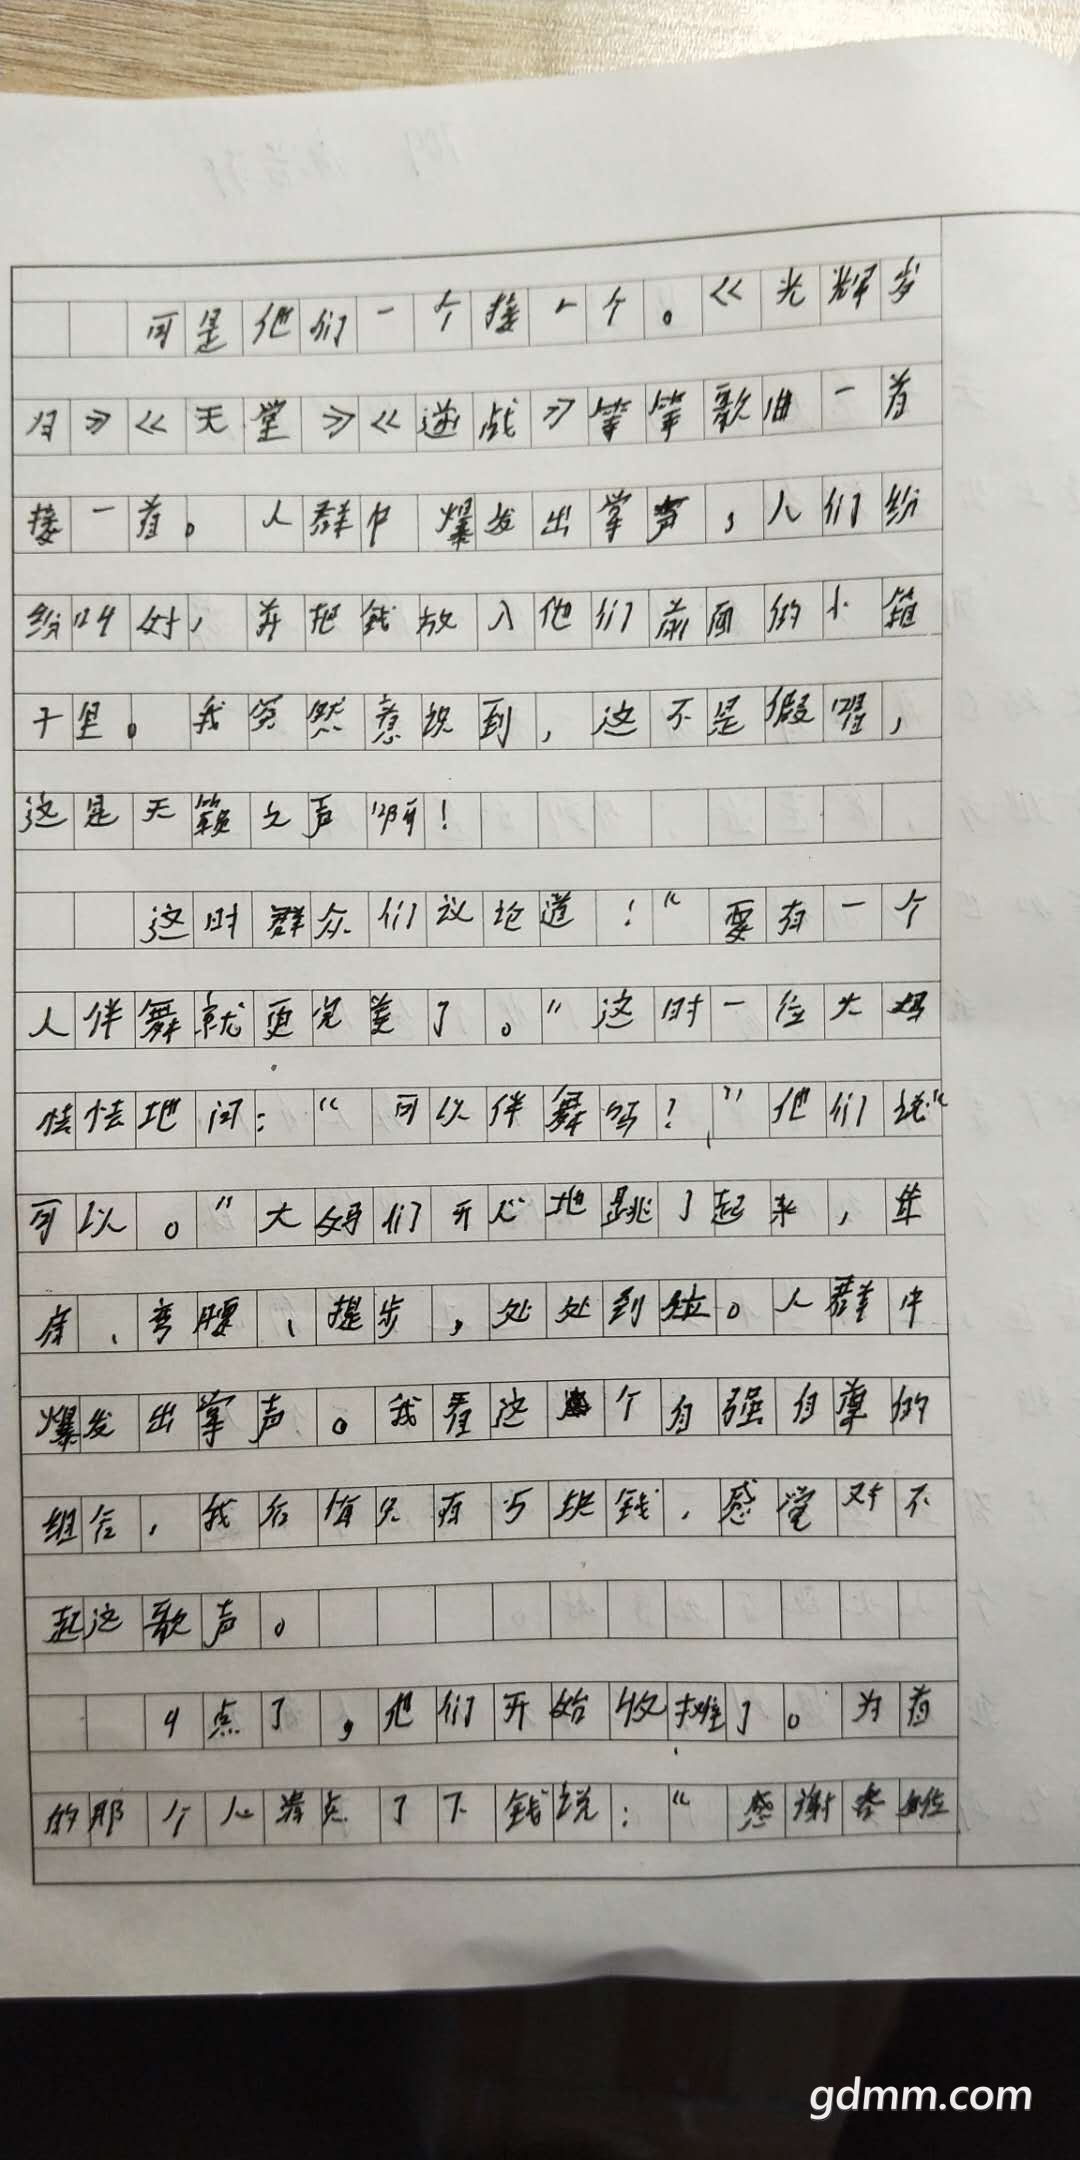 可是他们一个接一个。《光辉岁
月》《天堂》《逆战》等等歌曲一首
接一首。人群中爆发出掌声，人们纷
纷叫好，并把钱放入他们前面的小箱
子里。我突然意识到，这不是假唱，
这是天籁之声啊！
这时群众们议论道：“要有一个
人伴舞就更完美了。”这时一位大妈
怯怯地问：“可以伴舞吗？”他们说“
可以。”大妈们开心地跳了起来，
、弯腰、提步，处处到位。人群中
爆发出掌声。我看这个自强自尊的
组合，我后悔只有5块钱，感觉对不
起这歌声。
4点了，他们开始收摊了。为首
的那个人清点了下钱说：“感谢各位
gdmm.com